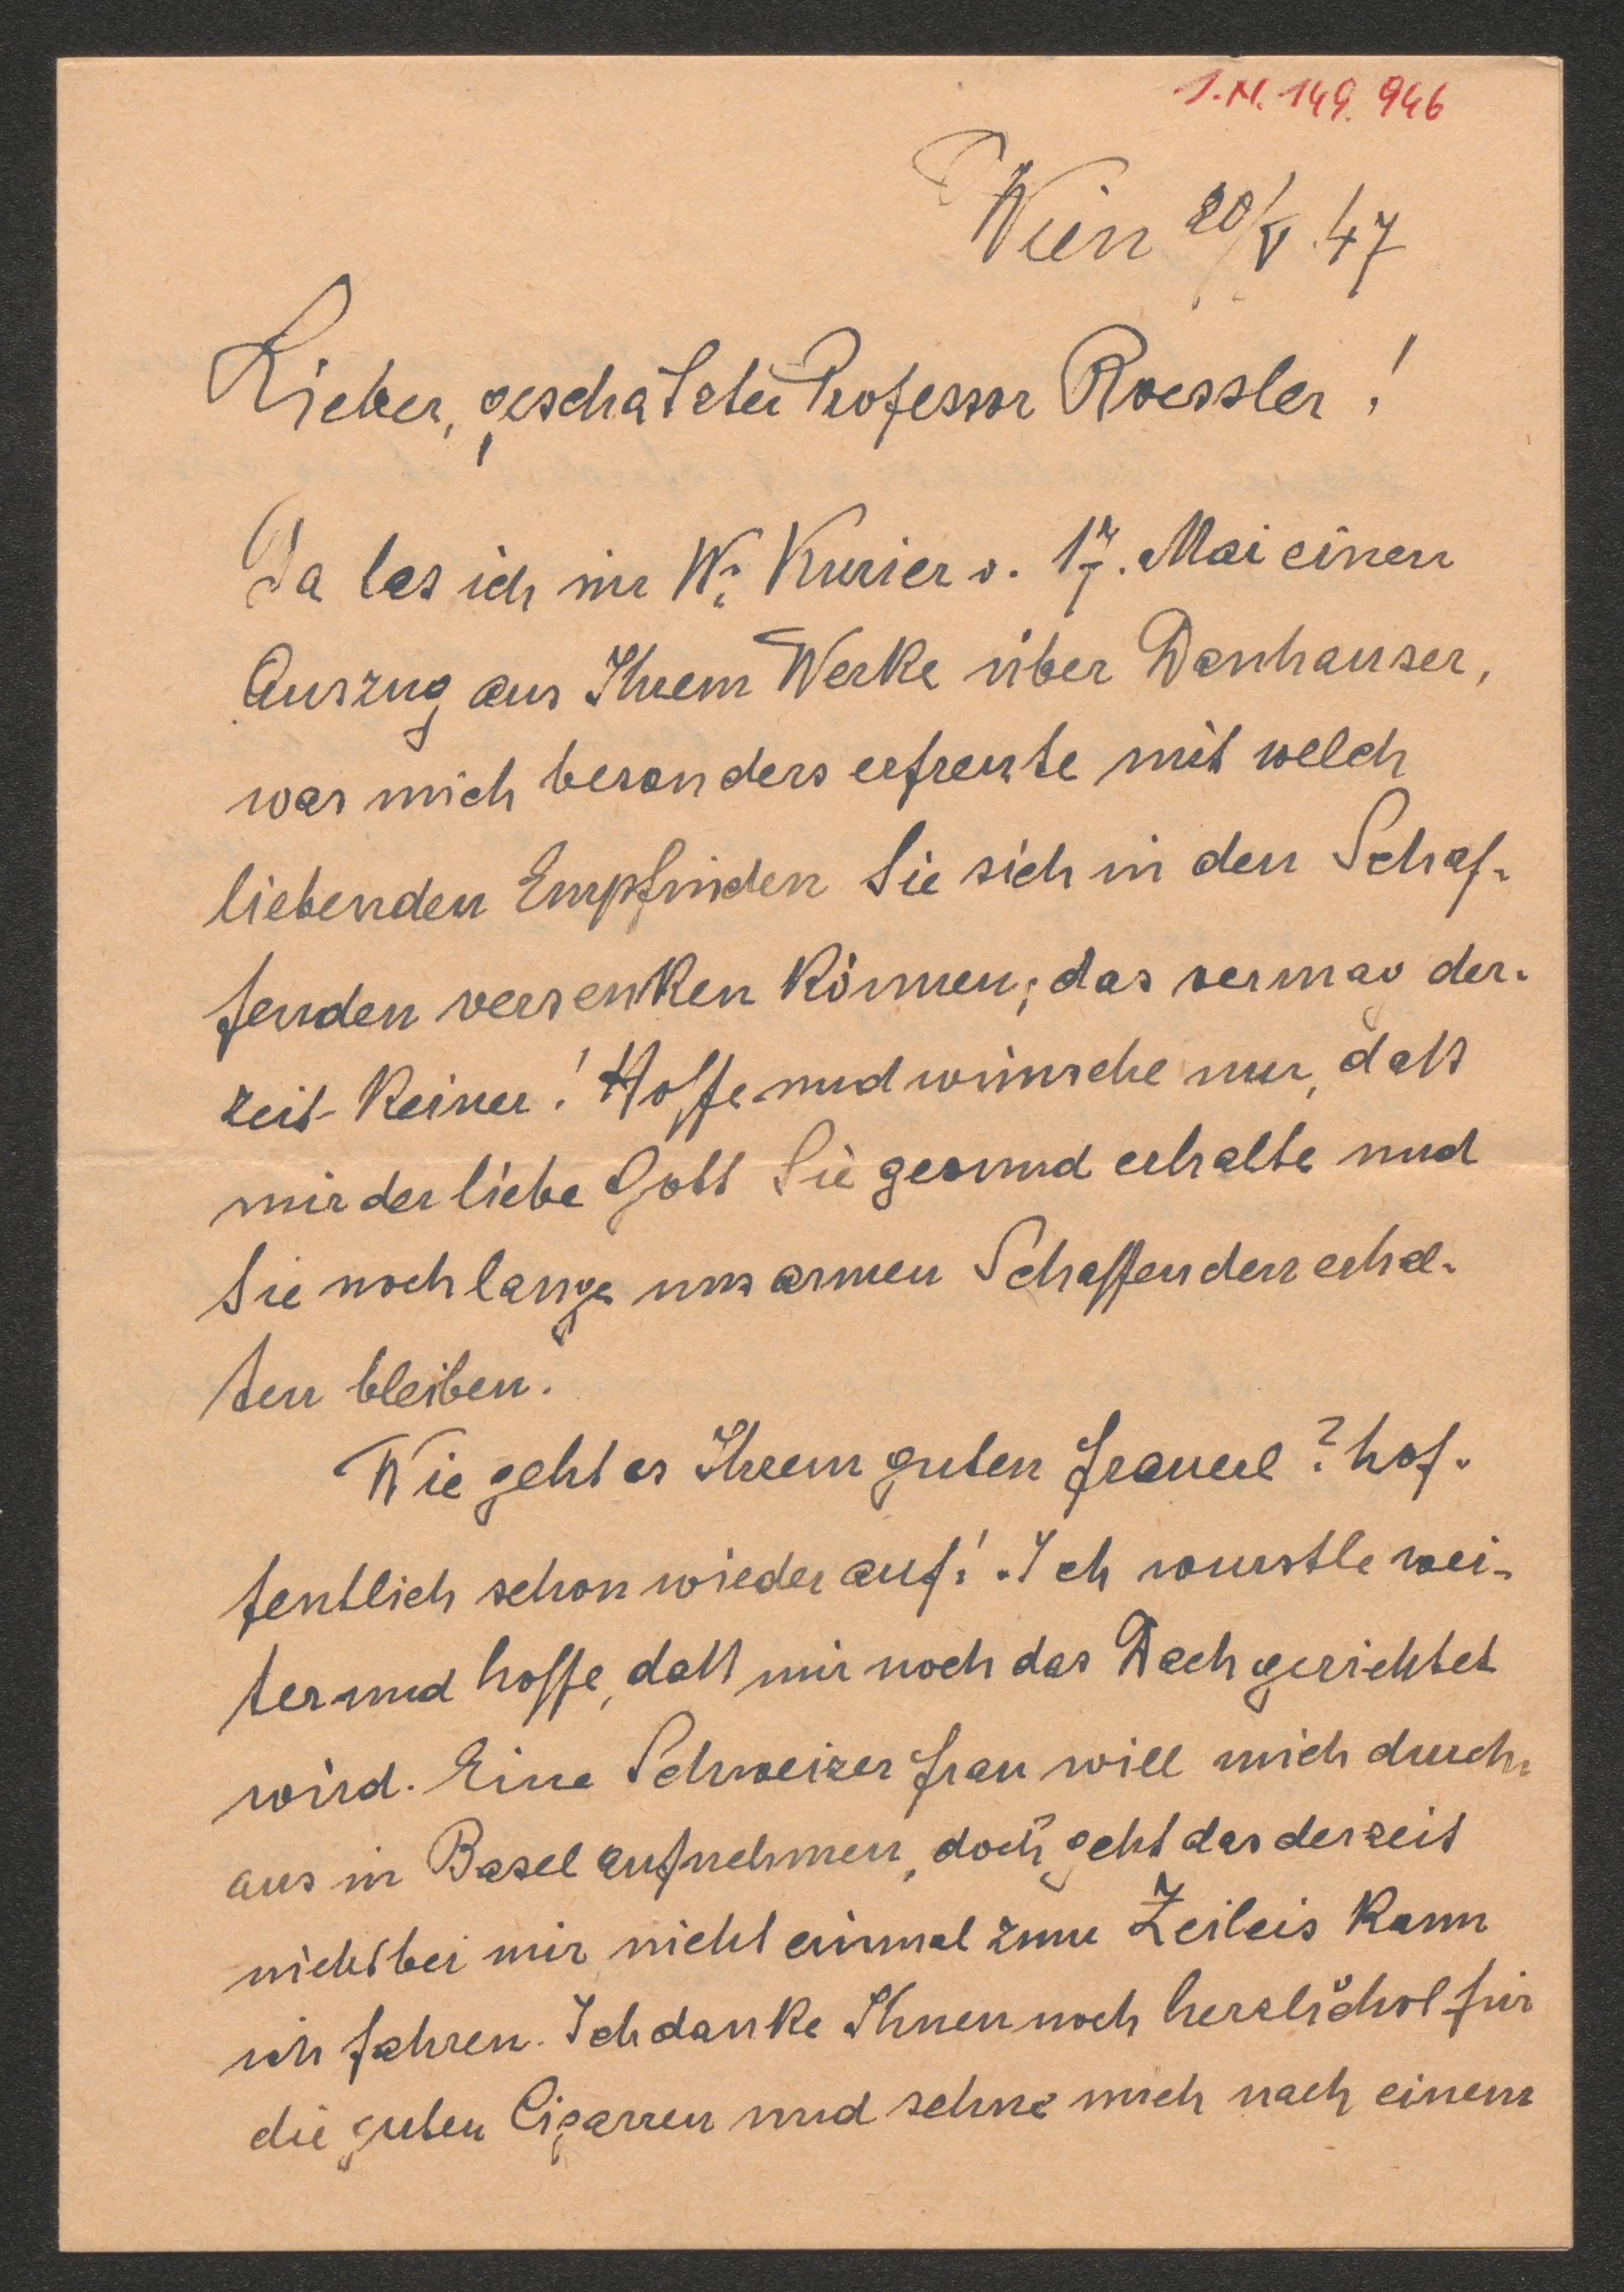 I.N. 149.946
Wien 20/V.47
Lieber, geschätzter Professor Roessler!
Da las ich im Wr. Kurier v. 17. Mai einen
Auszug aus Ihrem Werke über Danhauser,
was mich besonders erfreute mit welch
liebenden Empfinden Sie sich in den Schaf-
fenden versenken können, das vermag der-
zeit keiner! Hoffe und wünsche nur, daß
mir der liebe Gott Sie gesund erhalte und
Sie noch lange uns armen Schaffenden erhal-
ten bleiben.
Wie geht es Ihrem guten Frauerl? hof-
fentlich schon wieder auf! Ich wurstle wei-
ter und hoffe, daß mir noch das Dach gerichtet
wird. Eine Schweizer Frau will mich durch-
aus in Basel aufnehmen, doch geht das derzeit
nicht bei mir nicht einmal zum Zeileis kann
ich fahren. Ich danke Ihnen noch herzlichst für
die guten Cigarren und sehne mich nach einem